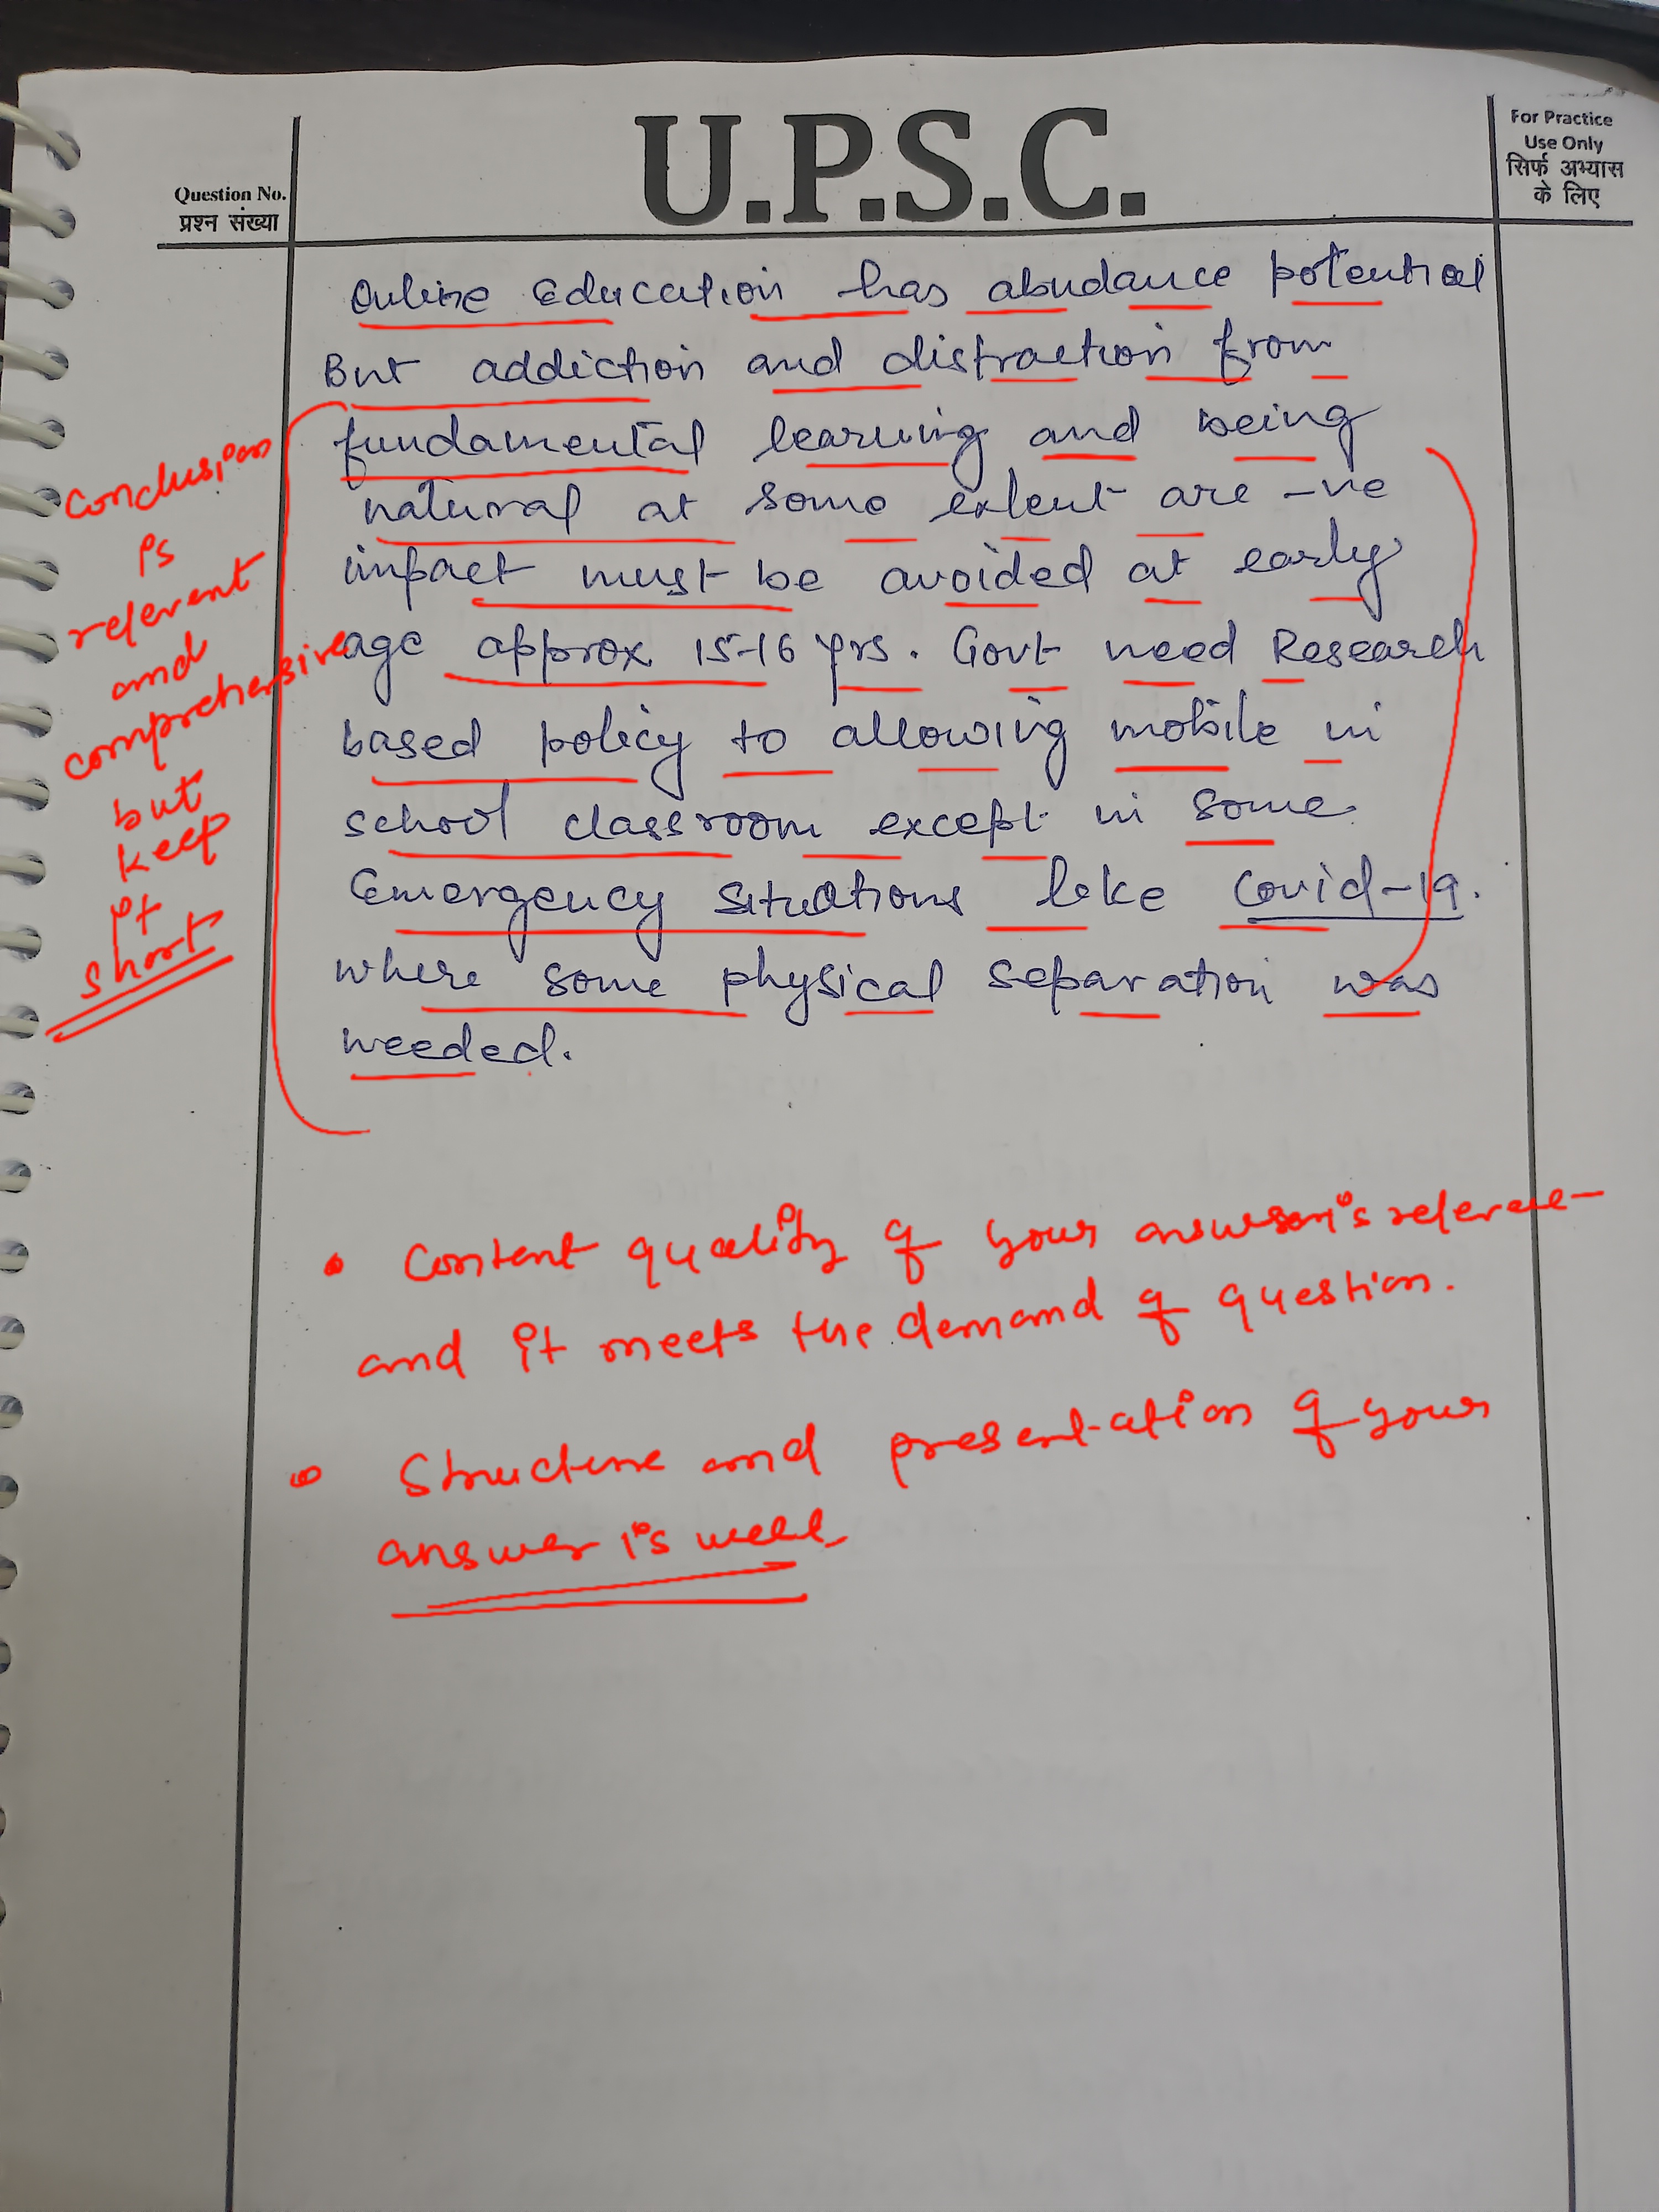 U.P.S.C.
Question No.
प्रश्न संख्या
For Practice
Use Only
सिर्फ अभ्यास
के लिए
Online Education has abudance potential
But addiction and distraction from
fundamental learning and being
natural at some extent are -ve
impact must be avoided at early
age approx 15-16 yrs. Govt need Research
based policy to allowing mobile in
school classroom except in some
Emergency situations like Covid-19.
where some physical separation was
needed.
Conclusion
is
relevent
and
comprehensive
but
keep
it
short
• Content quality of your answer is relevent
and it meets the demand of question.
• Structure and presentation of your
answer is well